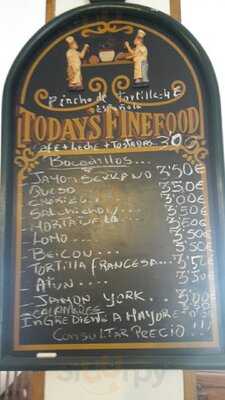 Pincho de tortilla: 4€
ESPAÑOLA
TODAY'S FINE FOOD
CAFE + Leche + Tostadas 3'0
Bocadillos...
JAMON SERRANO 3'50€
QUESO 3'50€
CHORIZO 3'00€
SALCHICHON 3'50€
MORTADELA
LOMO... 3'50€
BEICON...
TORTILLA FRANCESA...
ATUN...
JAMON YORK...
CALAMARES
INGREDIENTE A MAYOR
CONSULTAR PRECIO